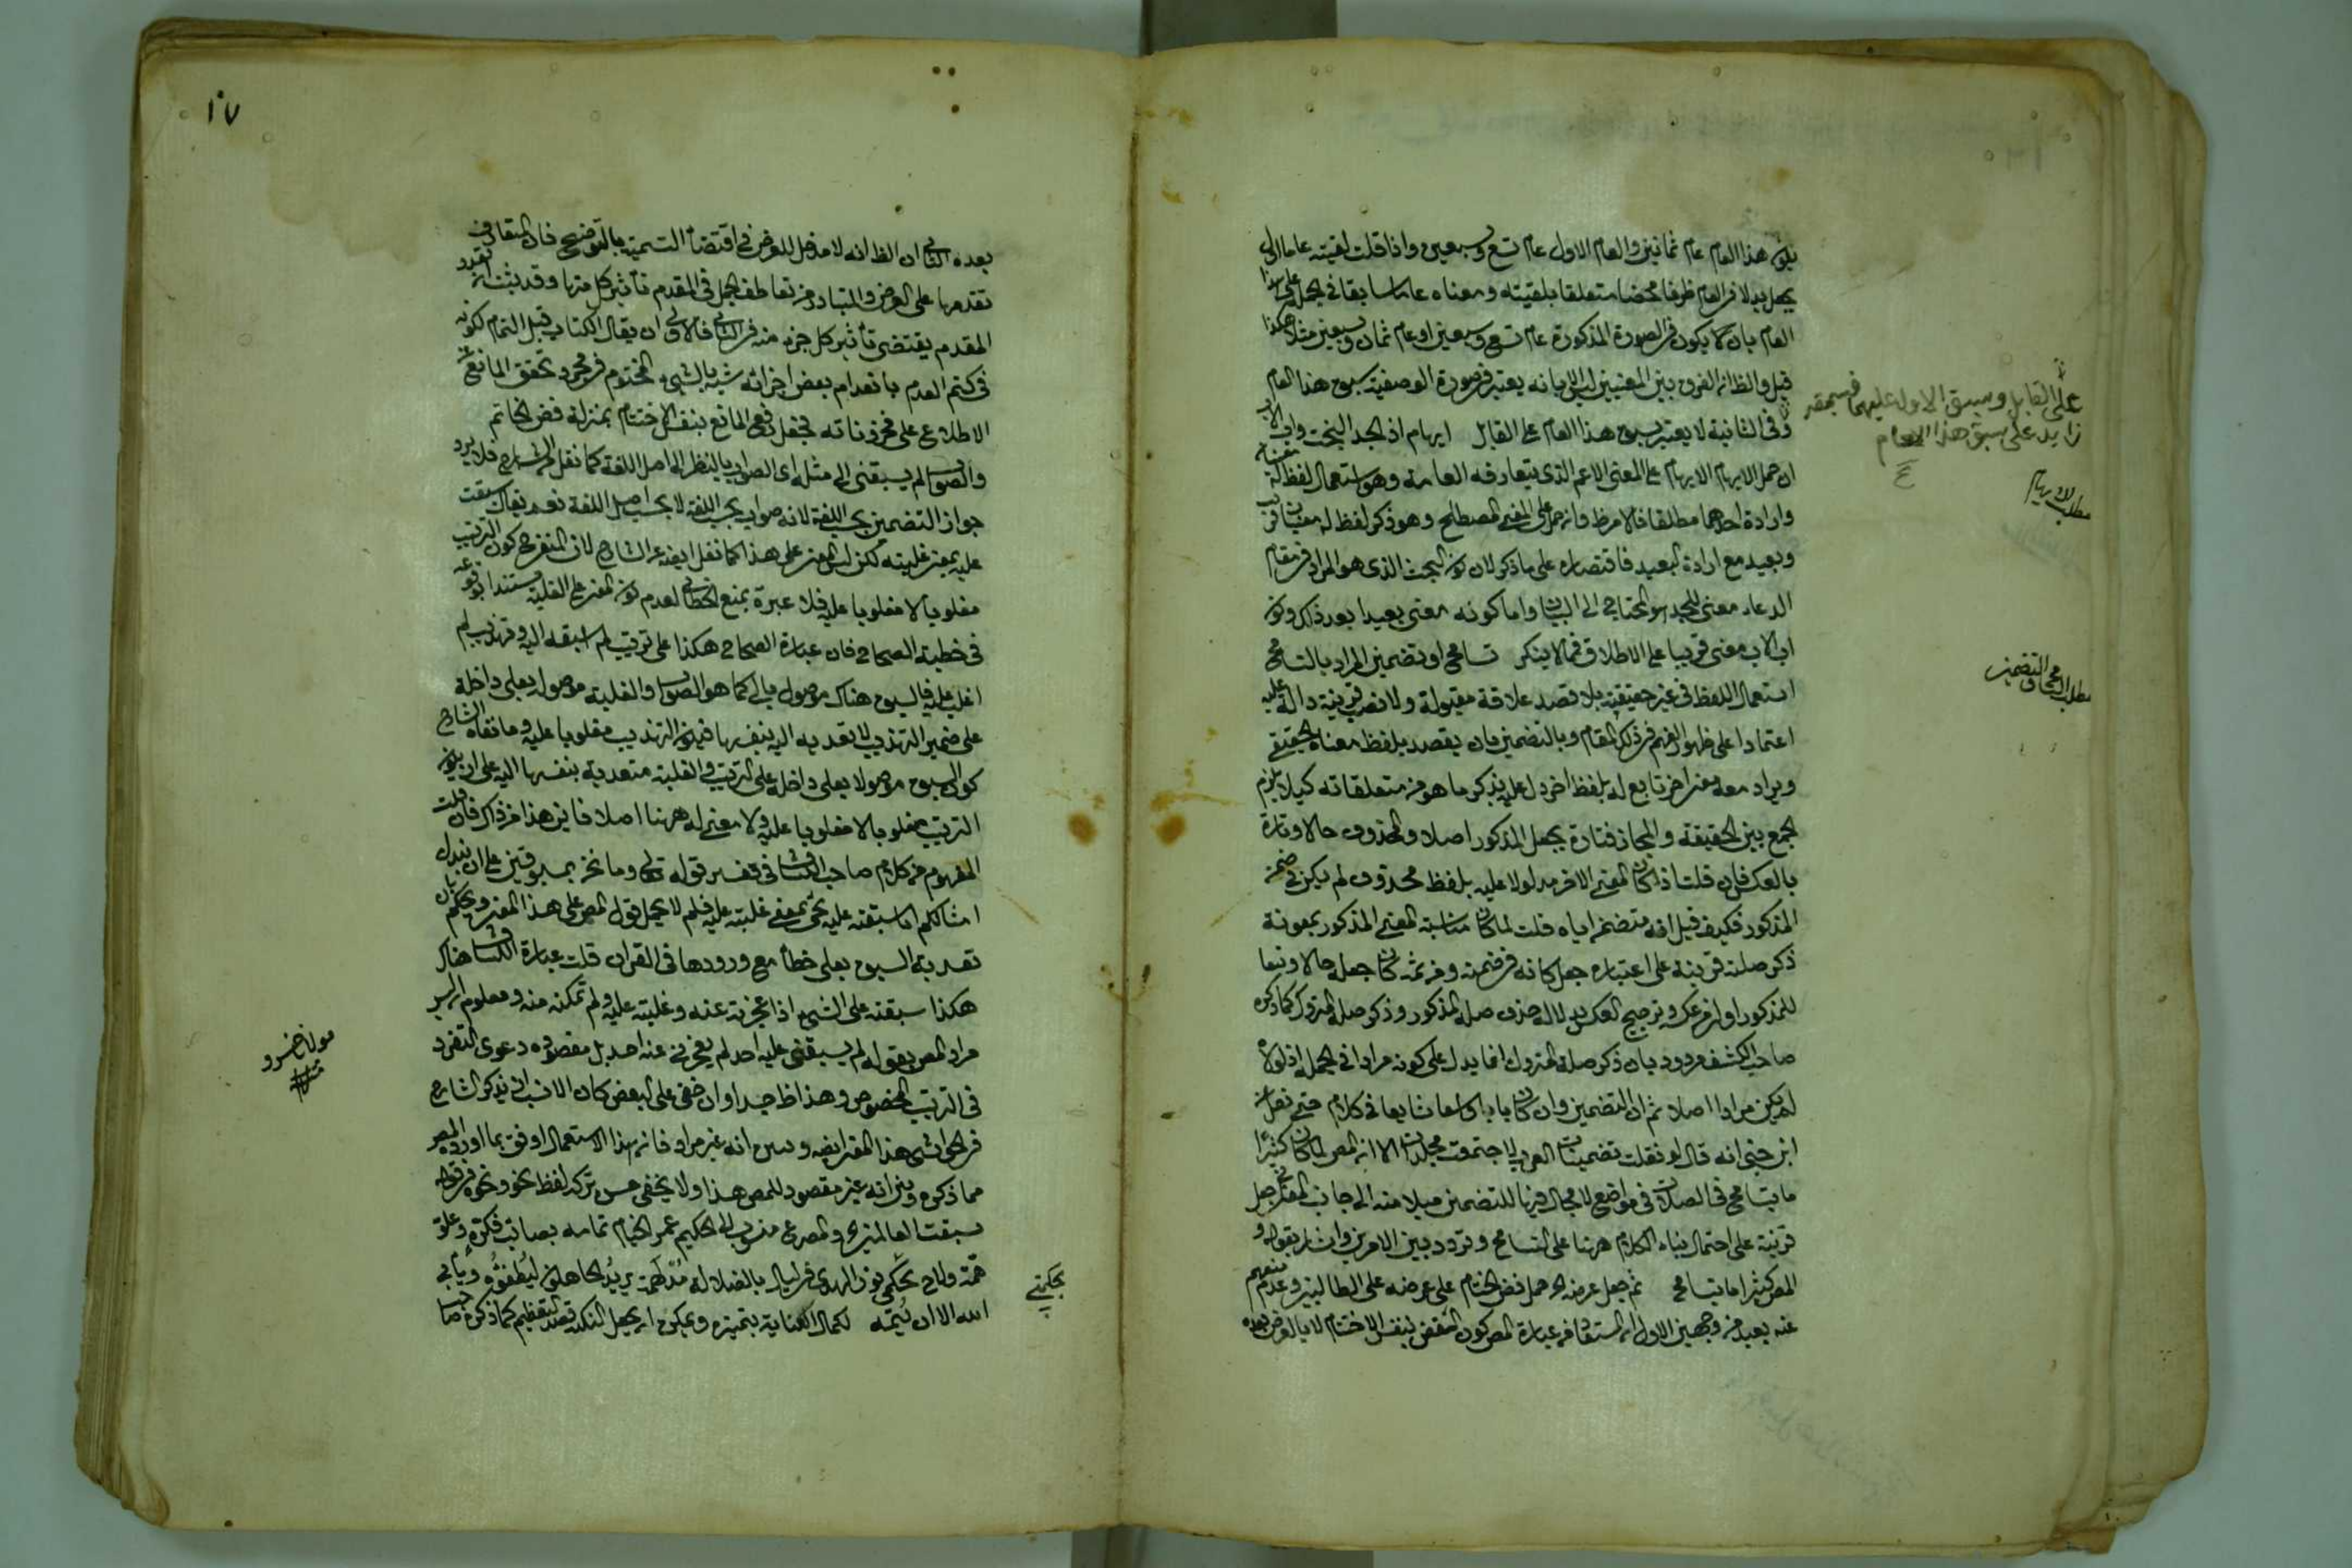 يكون هذا العام عام ثمانين والعام الاول عام تسع وسبعين واذا قلت لقيته عاما اول
يجعل بدلا من العام ظرفا محضا متعلقا بلقيته ومعناه عاما سابقا في الجملة على هذا
العام بان لا يكون في الصورة المذكورة عام تسع وسبعين او عام ثمان وسبعين مثلا هكذا
قيل والظ ان الفرق بين المعنيين ليس الا بانه يعتبر في صورة الوصفية سبق هذا العام
وفي الثانية لا يعتبر سبق هذا العام على القابل ايهام اذ الجد البخت واب الاب
ان حمل الايهام على المعنى الاعم الذي يتعارفه العامة وهو استعمال لفظ له معنيان
وارادة احدهما مطلقا فالامر ظ وان حمل على المعنى المصطلح وهو ذكر لفظ له معنيان قريب
وبعيد مع ارادة البعيد فاقتصاره على ما ذكر لان كون البخت الذي هو المراد في مقام
الدعاء معنى للجد هو المحتاج الى البيان واما كونه معنى بعيدا بعد ذلك وكون
اب الاب معنى قريبا على الاطلاق فمما لا ينكر تسامح او تضمين المراد بالتسامح
استعمال اللفظ في غير حقيقته بلا قصد علاقة مقبولة ولا نصب قرينة دالة عليه
اعتمادا على ظهور الفهم في ذلك المقام وبالتضمين بان يقصد بلفظ معناه الحقيقي
ويراد معه معنى اخر تابع له بلفظ اخر دل عليه بذكر ما هو من متعلقاته كيلا يلزم
الجمع بين الحقيقة والمجاز فتارة يجعل المذكور اصلا والمحذوف حالا وتارة
بالعكس فان قلت اذا كان المعنى الاخر مدلولا عليه بلفظ محذوف لم يكن في ضمن
المذكور فكيف قيل انه متضمن اياه قلت لما كان مناسبة المعنى المذكور بمعونة
ذكر صلته قرينة على اعتباره جعل كانه في ضمنه ومن ثمه كان جعله حالا وتبعا
للمذكور اولى من عكسه وترجيح العكس بدلالة حذف صلة المذكور وذكر صلة المتروك كما ذكره
صاحب الكشف مردود بان ذكر صلة المتروك انما يدل على كونه مرادا في الجملة اذ لولاه
لم يكن مرادا اصلا ثم ان التضمين وان كان بابا واسعا شايعا في كلامهم حتى نقل عن
ابن جني انه قال لو نقلت تضمينات العرب لاجتمعت مجلدات الا ان المص لما كان كثيرا
ما يتسامح في الصلات في مواضع لا مجال فيها للتضمين ميلا منه الى جانب المعنى جعل
قرينة على احتمال بناء الكلام ههنا على التسامح وتردد بين الامرين واشار بقوله و
المص كثيرا ما يتسامح ثم جعل عرضه الخ حمل فض الختام على عرضه على الطالبين وعدم منعهم
عنه بعيد من وجهين الاول ان المستفاد من عبارة المص كون الفض لنفس الاختتام لا بالعرض بعده
على القابل وسبق الاول عليهما
زايد على سبق هذا العام
مطلب الايهام
مطلب التسامح والتضمين
١٠٧
بعده الثاني ان الظ انه لا مدخل للعرض في اقتضاء التسمية بالتوضيح فان المتعارف
تقدمها على العرض والمتبادر من تعاطف الجمل في المقدم تأثير كل منها وقد يثبت
المقدم يقتضي تأثير كل جزء منه في التالي فالاولى ان يقال الكتاب قبل التمام لكونه
في كتم العدم بانعدام بعض اجزائه شبيه بالشيء المختوم في مجرد تحقق المانع عن
الاطلاع على مخزوناته فجعل رفع المانع بنفس الاختتام بمنزلة فض الخاتم
والصواب لم يسبقني الى مثله اي الصواب بالنظر الى اصل اللغة كما نقل عن الشارح فلا يرد
جواز التضمين بحسب اللغة لانه صواب بحسب اللغة لا بحسب اصل اللغة نعم يقال سبقت
عليه بمعنى غلبته لكن ليس المعنى على هذا كما نقل ايضا عن الشارح لان المقصود كون الترتيب
مغلوبا لا مغلوبا عليه فلا عبرة بمنع الخطأ لعدم كون المعنى على الغلبة مستندا بوقوعه
في خطبة الصحاح فان عبارة الصحاح هكذا على ترتيب لم اسبق اليه وتهذيب لم
اغلب عليه فالسبق هناك موصول بالى كما هو الصواب والغلبة موصولة بعلى داخلة
على ضمير التهذيب لا تعديه اليه بنفسها فيكون التهذيب مغلوبا عليه وما نفاه الشارح
كون السبق موصولا بعلى داخلة على الترتيب والغلبة متعدية بنفسها اليه على ان يكون
الترتيب مغلوبا لا مغلوبا عليه ولا معنى له ههنا اصلا فاين هذا من ذاك فان قلت
المفهوم من كلام صاحب الكشاف في تفسير قوله تعالى وما نحن بمسبوقين على ان نبدل
امثالكم ان سبقته عليه يجيء بمعنى غلبته عليه فلم لا يحمل قول المص على هذا المعنى ويحكم بان
تعدية السبق بعلى خطأ مع ورودها في القران قلت عبارة الكشاف هناك
هكذا سبقته على الشيء اذا اعجزته عنه وغلبته عليه ولم تمكنه منه ومعلوم ان ليس
مراد المص بقوله لم يسبقني عليه احد لم يعجزني عنه احد بل مقصوده دعوى التفرد
في الترتيب المخصوص وهذا ظ جدا وان خفي على البعض كان الانسب ان يذكر الشارح
في الحواشي هذا المعنى ايضا ويبين انه غير مراد فانه بهذا الاستعمال اوفق بما اورده المص
مما ذكره وبين انه غير مقصود للمص هذا ولا يخفى حسن ترك لفظ نحو ونحوه في قوله
سبقت العالمين والمصرع منسوب الى الحكيم عمر الخيام تمامه بصائب فكرة وعلو
همة ولاح بحكمتي نور الهدى في ليال بالضلالة مدلهمة يريد الجاهلون ليطفئوه ويأبى
الله الا ان يتمه لكمال العناية بتميزه ويمكن ان يجعل النكتة قصد التعظيم كما ذكره صا
مولانا خسرو
بحكمتي